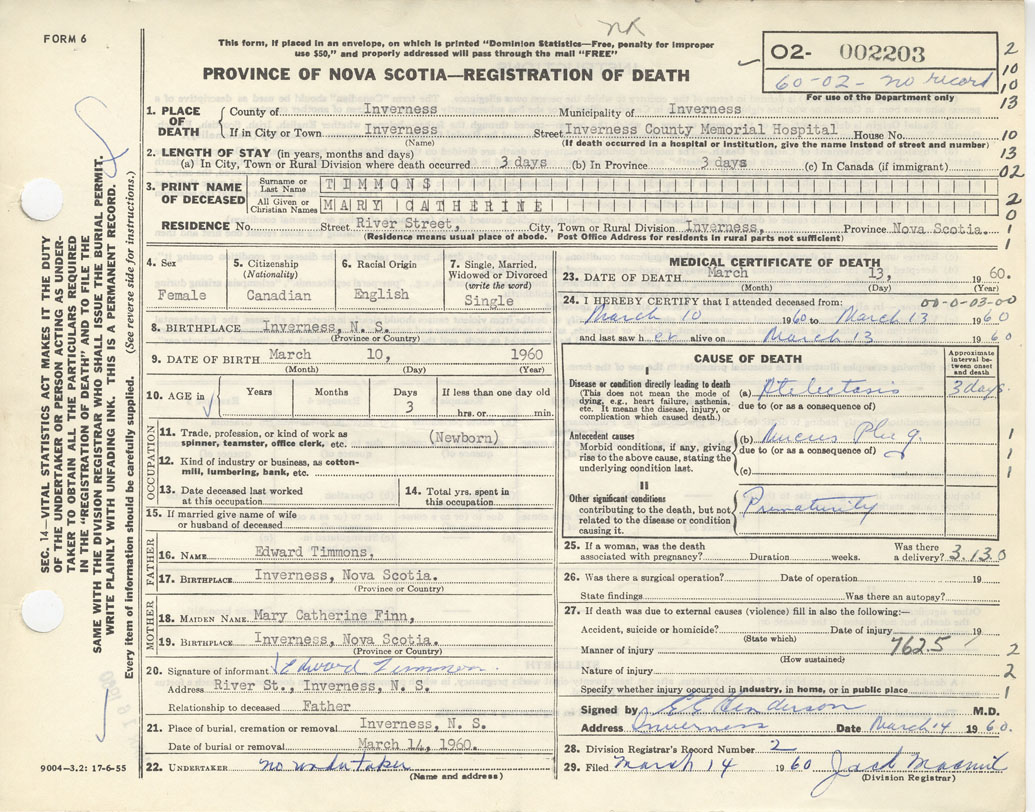 FORM 6
NR
This form, if placed in an envelope, on which is printed "Dominion Statistics—Free, penalty for improper
use $50," and properly addressed will pass through the mail "FREE"
PROVINCE OF NOVA SCOTIA—REGISTRATION OF DEATH
02- 002203
60-02- no record
For use of the Department only
2
10
10
13
10
13
02
2
0
1
1
SEC. 14—VITAL STATISTICS ACT MAKES IT THE DUTY
OF THE UNDERTAKER OR PERSON ACTING AS UNDER-
TAKER TO OBTAIN ALL THE PARTICULARS REQUIRED
IN THE "REGISTRATION OF DEATH" AND TO FILE THE
SAME WITH THE DIVISION REGISTRAR WHO SHALL ISSUE THE BURIAL PERMIT.
WRITE PLAINLY WITH UNFADING INK. THIS IS A PERMANENT RECORD.
Every item of information should be carefully supplied. (See reverse side for instructions.)
1. PLACE OF DEATH
County of Inverness Municipality of Inverness
If in City or Town Inverness Street Inverness County Memorial Hospital House No.
(Name) (If death occurred in a hospital or Institution, give the name instead of street and number)
2. LENGTH OF STAY (in years, months and days)
(a) In City, Town or Rural Division where death occurred 3 days (b) In Province 3 days (c) In Canada (if immigrant)
3. PRINT NAME OF DECEASED
Surname or Last Name TIMMONS
All Given or Christian Names MARY CATHERINE
RESIDENCE No. Street River Street, City, Town or Rural Division Inverness, Province Nova Scotia.
(Residence means usual place of abode. Post Office Address for residents in rural parts not sufficient)
4. Sex
Female
5. Citizenship
(Nationality)
Canadian
6. Racial Origin
English
7. Single, Married,
Widowed or Divorced
(write the word)
Single
8. BIRTHPLACE Inverness, N. S.
(Province or Country)
9. DATE OF BIRTH March 10, 1960
(Month) (Day) (Year)
10. AGE in
Years Months Days If less than one day old
3 hrs. or min.
OCCUPATION
11. Trade, profession, or kind of work as
spinner, teamster, office clerk, etc. (Newborn)
12. Kind of industry or business, as cotton-
mill, lumbering, bank, etc.
13. Date deceased last worked
at this occupation
14. Total yrs. spent in
this occupation
15. If married give name of wife
or husband of deceased
FATHER
16. NAME Edward Timmons.
17. BIRTHPLACE Inverness, Nova Scotia.
(Province or Country)
MOTHER
18. MAIDEN NAME Mary Catherine Finn,
19. BIRTHPLACE Inverness, Nova Scotia.
(Province or Country)
20. Signature of informant Edward Timmons.
Address River St., Inverness, N. S.
Relationship to deceased Father
21. Place of burial, cremation or removal Inverness, N. S.
Date of burial or removal March 14, 1960.
22. UNDERTAKER no undertaker
(Name and address)
9004—3.2: 17-6-55
MEDICAL CERTIFICATE OF DEATH
23. DATE OF DEATH March 13, 1960.
(Month) (Day) (Year)
24. I HEREBY CERTIFY that I attended deceased from: 00-0-03-00
March 10 1960 to March 13 1960
and last saw her alive on March 13 1960.
CAUSE OF DEATH
Approximate
interval be-
tween onset
and death
I
Disease or condition directly leading to death
(This does not mean the mode of
dying, e.g., heart failure, asthenia,
etc. It means the disease, injury, or
complication which caused death.)
(a) Atelectasis 3 days
due to (or as a consequence of)
Antecedent causes
Morbid conditions, if any, giving
rise to the above cause, stating the
underlying condition last.
(b) Mucus Plug.
due to (or as a consequence of)
(c)
1
1
1
II
Other significant conditions
contributing to the death, but not
related to the disease or condition
causing it.
Prematurity
25. If a woman, was the death
associated with pregnancy? Duration weeks. Was there
a delivery? 3.13.0
26. Was there a surgical operation? Date of operation 19
State findings Was there an autopsy?
27. If death was due to external causes (violence) fill in also the following:—
Accident, suicide or homicide? Date of injury 19
(State which)
762.5
Manner of injury 2
(How sustained)
Nature of injury 2
Specify whether injury occurred in industry, in home, or in public place 1
Signed by E E Henderson M.D.
Address Inverness Date March 14 1960.
28. Division Registrar's Record Number 2
29. Filed March 14 1960
(Division Registrar)